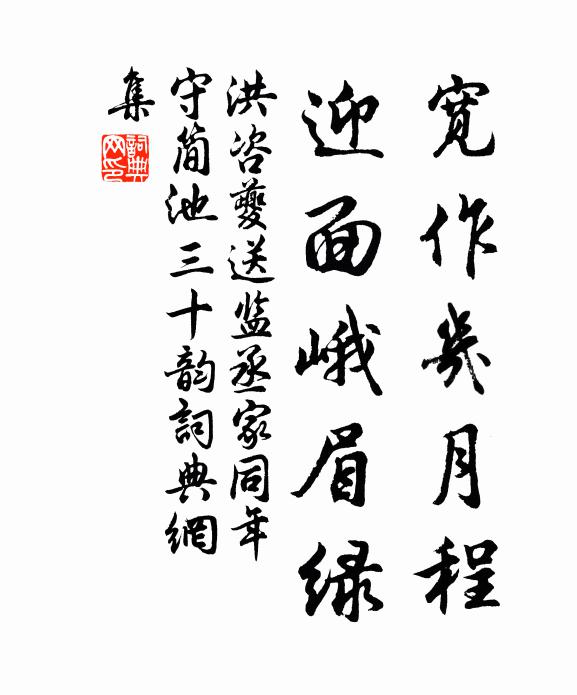 寛作幾月程
迎面峨眉緑
洪咨夔送监丞家同年
守简池三十韵詞典網
集
詞典网印